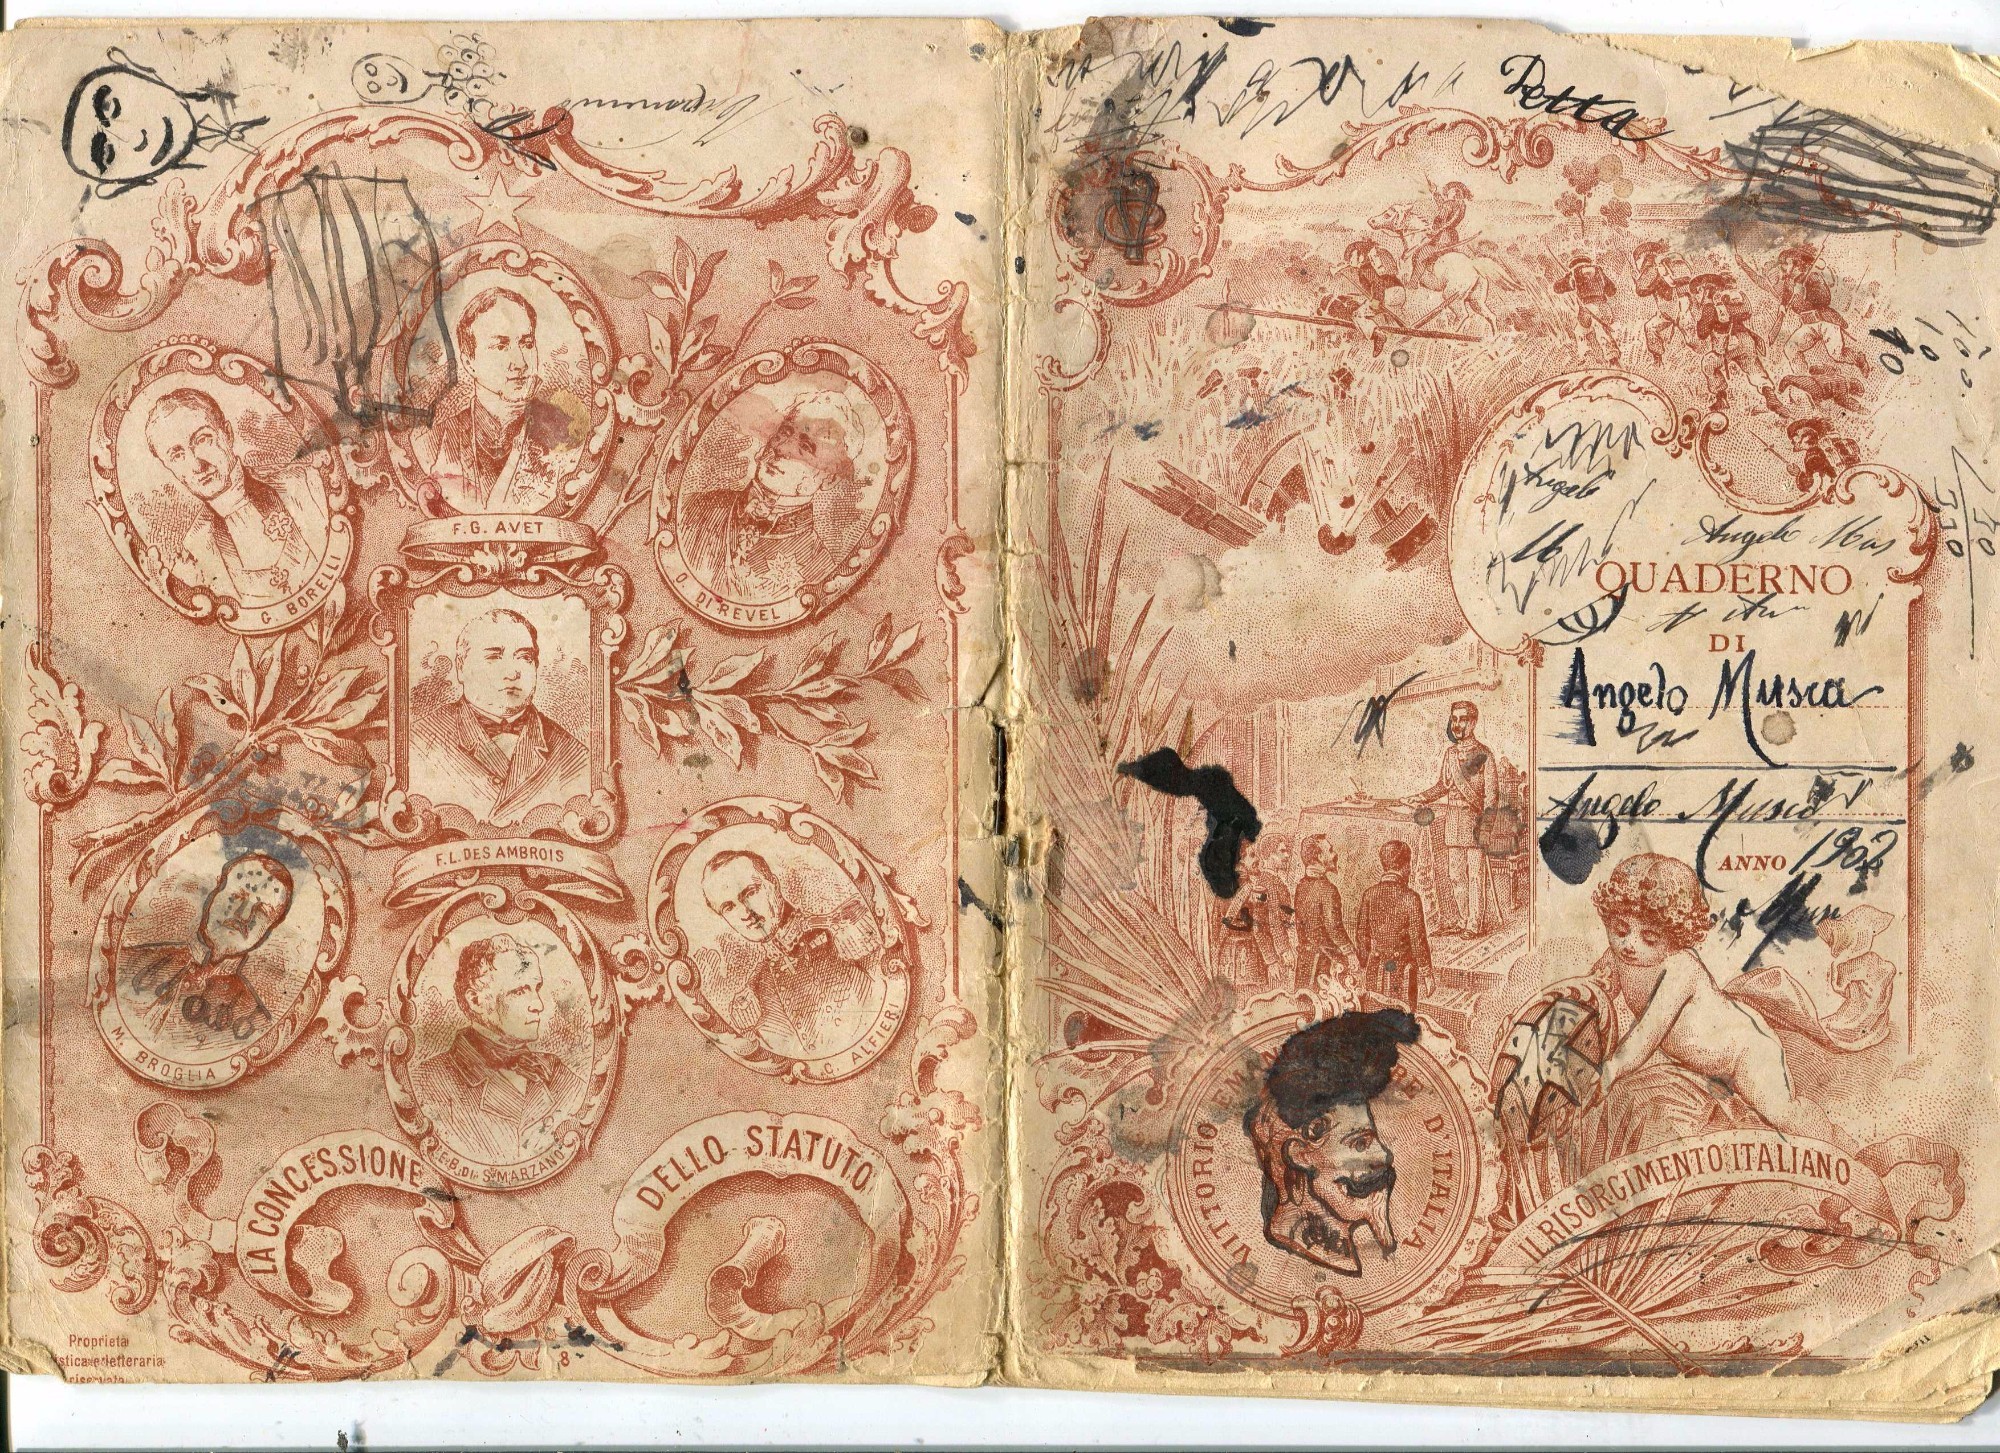 F.G. AVET
G. BORELLI
O. DI REVEL
F.L. DES AMBROIS
M. BROGLIA
C. ALFIERI
E.B. DI S. MARZANO
LA CONCESSIONE
DELLO STATUTO
Proprietà
stica e letteraria
riservata
8
Detta
100
10
10
Angelo
Angelo Mus
QUADERNO
DI
Angelo Musca
Angelo Musca
ANNO 1902
Mus
VITTORIO EMANUELE RE D'ITALIA
IL RISORGIMENTO ITALIANO